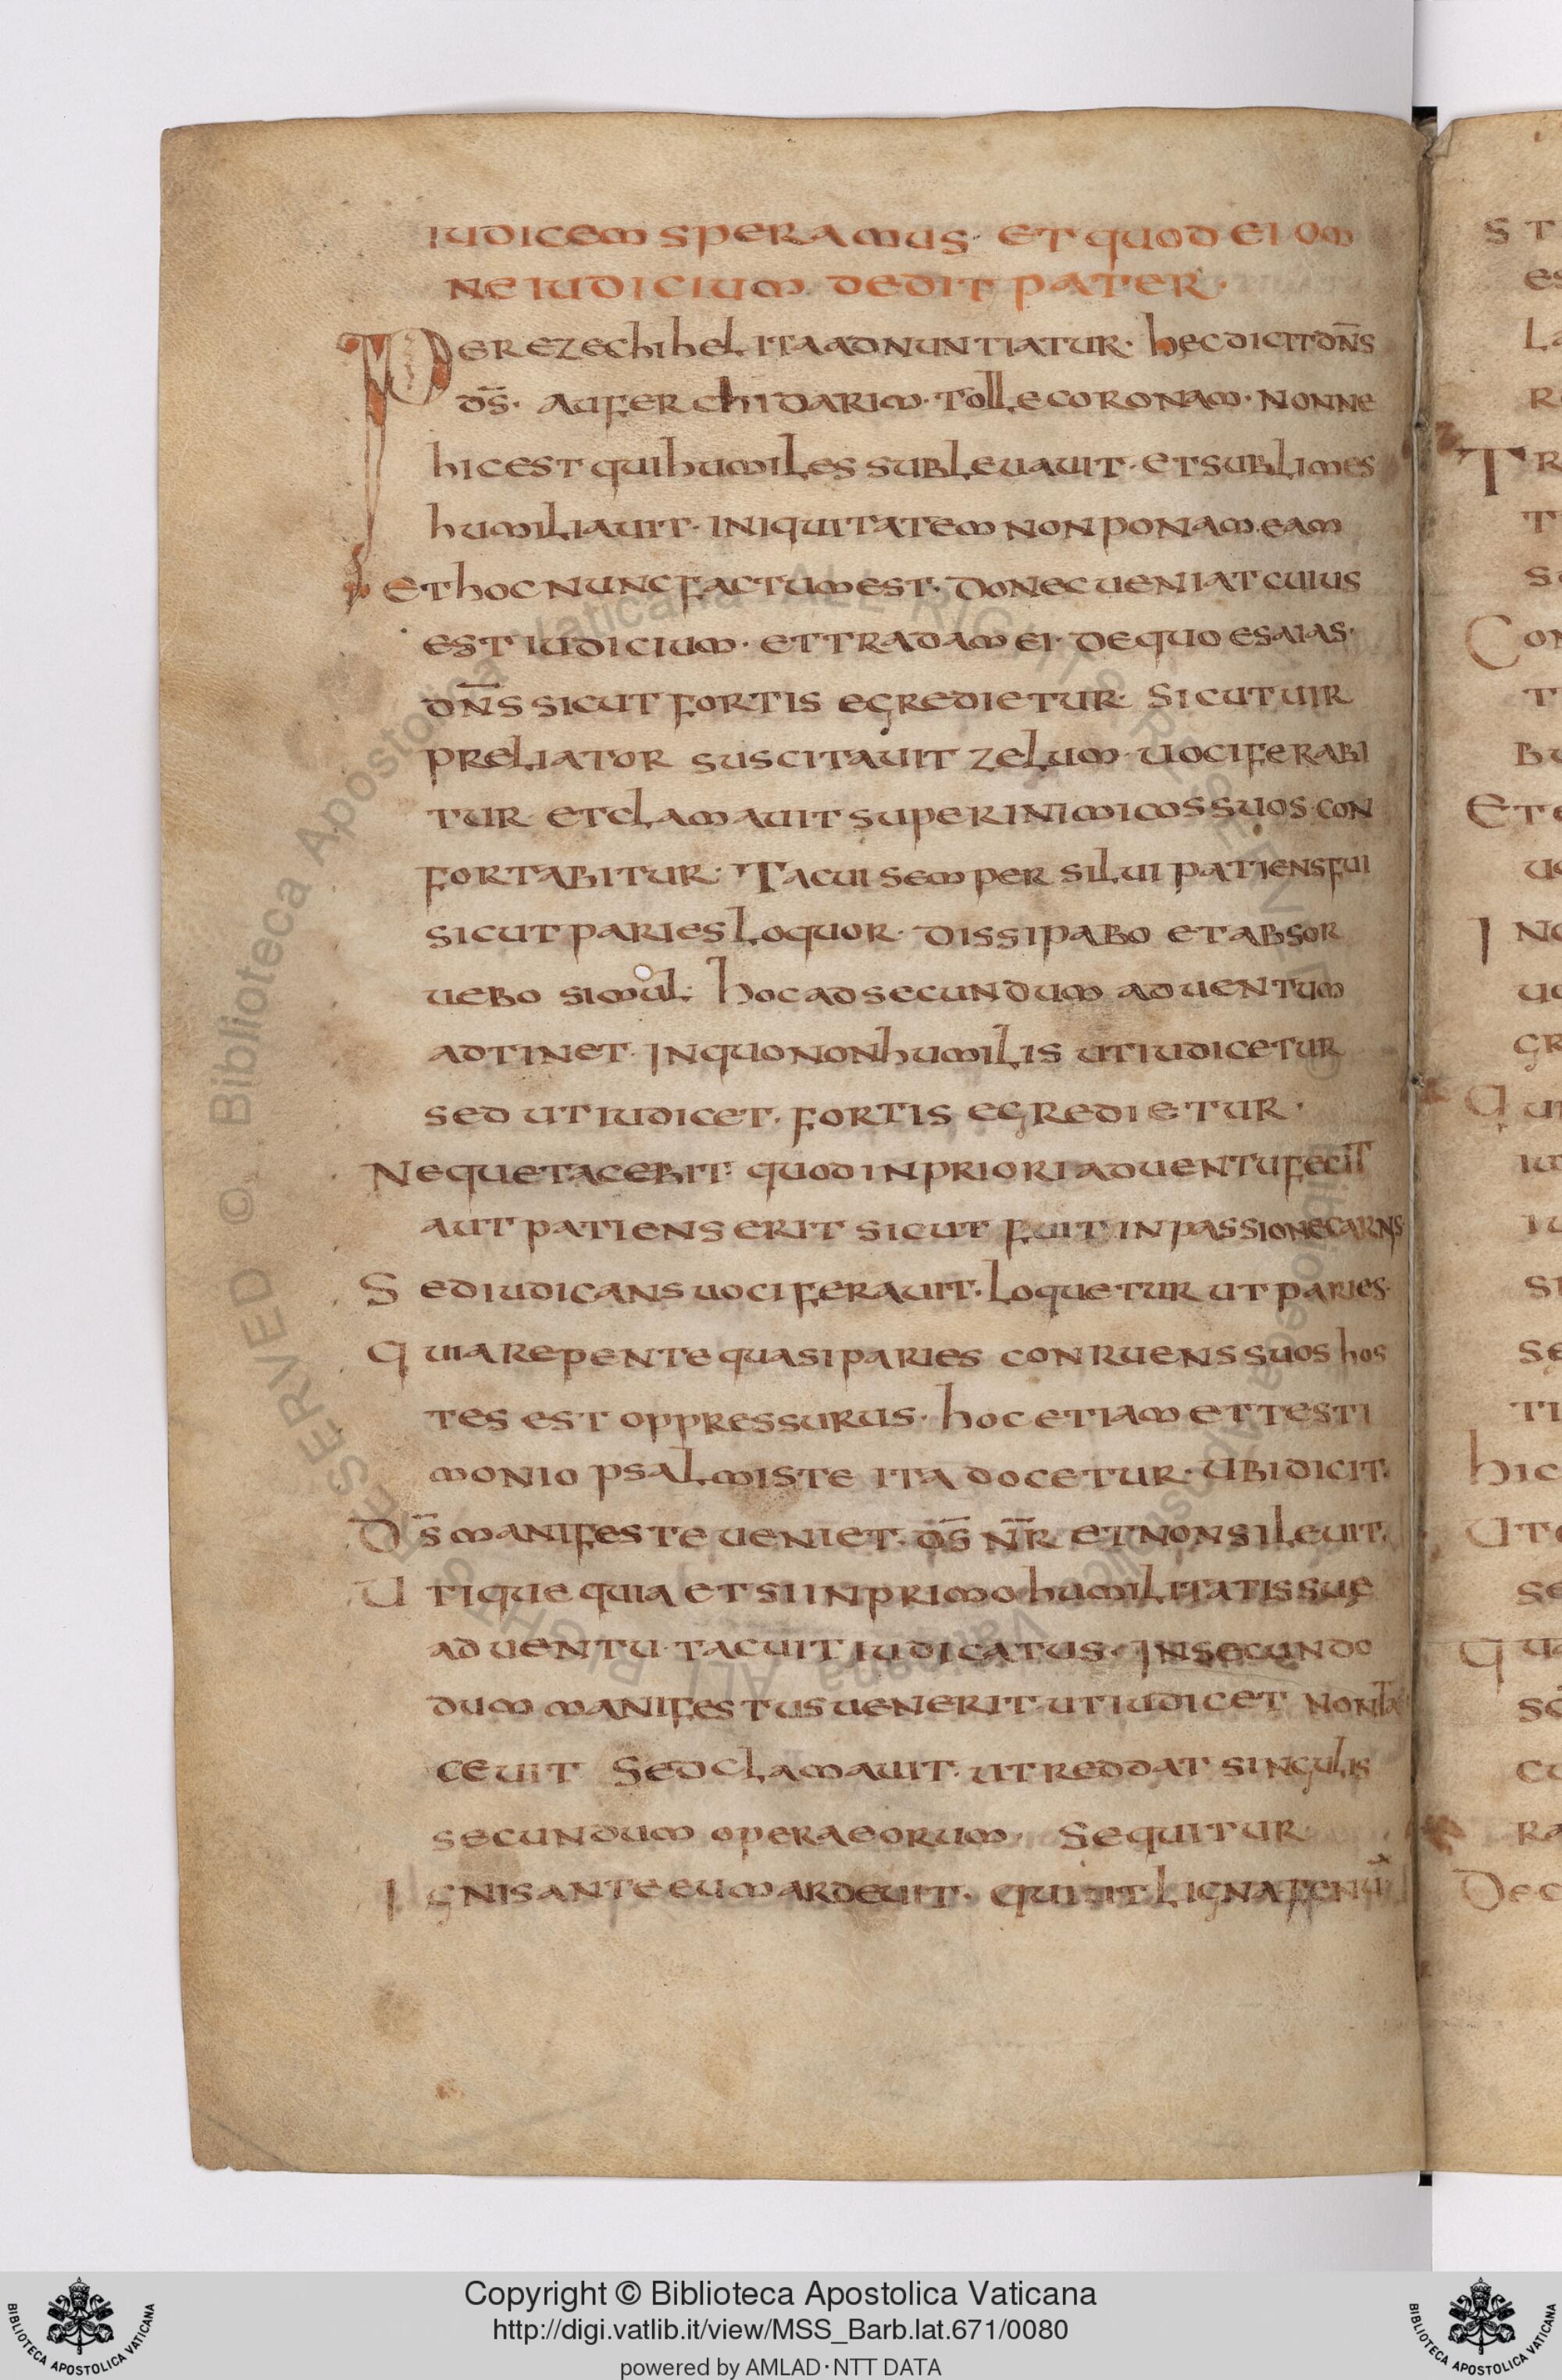 IUDICEM SPERAMUS· ET QUOD EI OM
NE IUDICIUM DEDIT PATER·
PER EZECHIHEL ITA ADNUNTIATUR· hęC DICIT DN̄S
DS̄· AUFER CHIDARIM· TOLLE CORONAM· NONNE
hIC EST QUI hUMILES SUBLEUAUIT· ET SUBLIMES
hUMILIAUIT· INIQUITATEM NON PONAM EAM
ET hOC NUNC FACTUM EST· DONEC UENIAT CUIUS
EST IUDICIUM· ET TRADAM EI· DE QUO ESAIAS·
DN̄S SICUT FORTIS EGREDIETUR· SICUT UIR
PRELIATOR SUSCITAUIT ZELUM· UOCIFERABI
TUR· ET CLAMAUIT SUPER INIMICOS SUOS· CON
FORTABITUR· TACUI SEMPER SILUI PATIENS FUI
SICUT PARIES LOQUOR· DISSIPABO ET ABSOR
UEBO SIMUL· hOC AD SECUNDUM ADUENTUM
ADTINET· IN QUO NON hUMILIS UT IUDICETUR
SED UT IUDICET· FORTIS EGREDIETUR·
NEQUE TACEBIT· QUOD IN PRIORI ADUENTU FECIT
AUT PATIENS ERIT SICUT FUIT IN PASSIONE CARNIS
SED IUDICANS UOCIFERAUIT· LOQUETUR UT PARIES·
QUIA REPENTE QUASI PARIES CONRUENS SUOS hOS
TES EST OPPRESSURUS· hOC ETIAM ET TESTI
MONIO PSALMISTE ITA DOCETUR· UBI DICIT·
DS̄ MANIFESTE UENIET· DS̄ NR̄ ET NON SILEUIT·
UTIQUE QUIA ETSI IN PRIMO hUMILITATIS SUę
ADUENTU· TACUIT IUDICATUS· IN SECUNDO
DUM MANIFESTUS UENERIT· UT IUDICET NON TA
CEUIT SED CLAMAUIT· UT REDDAT SINGULIS
SECUNDUM OPERA EORUM· SEQUITUR·
IGNIS ANTE EUM ARDEUIT· QUI UT LIGNA
Copyright © Biblioteca Apostolica Vaticana
http://digi.vatlib.it/view/MSS_Barb.lat.671/0080
powered by AMLAD·NTT DATA
BIBLIOTECA APOSTOLICA VATICANA
BIBLIOTECA APOSTOLICA VATICANA